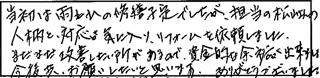 当初は雨といの修繕予定でしたが、担当の松山さんの
人柄と対応を気に入りリフォームを依頼しました。
まだまだ改善したい所があるので、資金的な余裕が出来ましたら
今後又、お願いしたいと思います。ありがとうございました